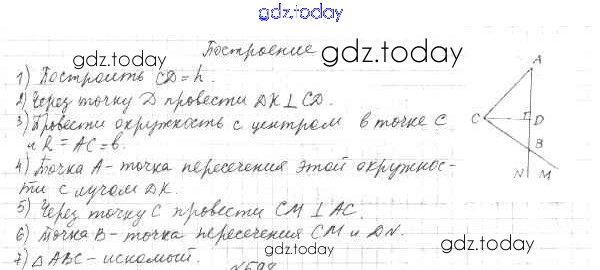 gdz.today
Построение
gdz.today
gdz.today
1) Построить CD = h.
2) Через точку D провести DK ⊥ CD.
3) Провести окружность с центром в точке C
и R = AC = b.
4) Точка A - точка пересечения этой окружнос-
ти с лучом DK.
5) Через точку C провести CM ⊥ AC.
6) Точка B - точка пересечения CM и DN.
7) △ABC - искомый.
A
C
D
B
N
M
gdz.today
gdz.today
gdz.today